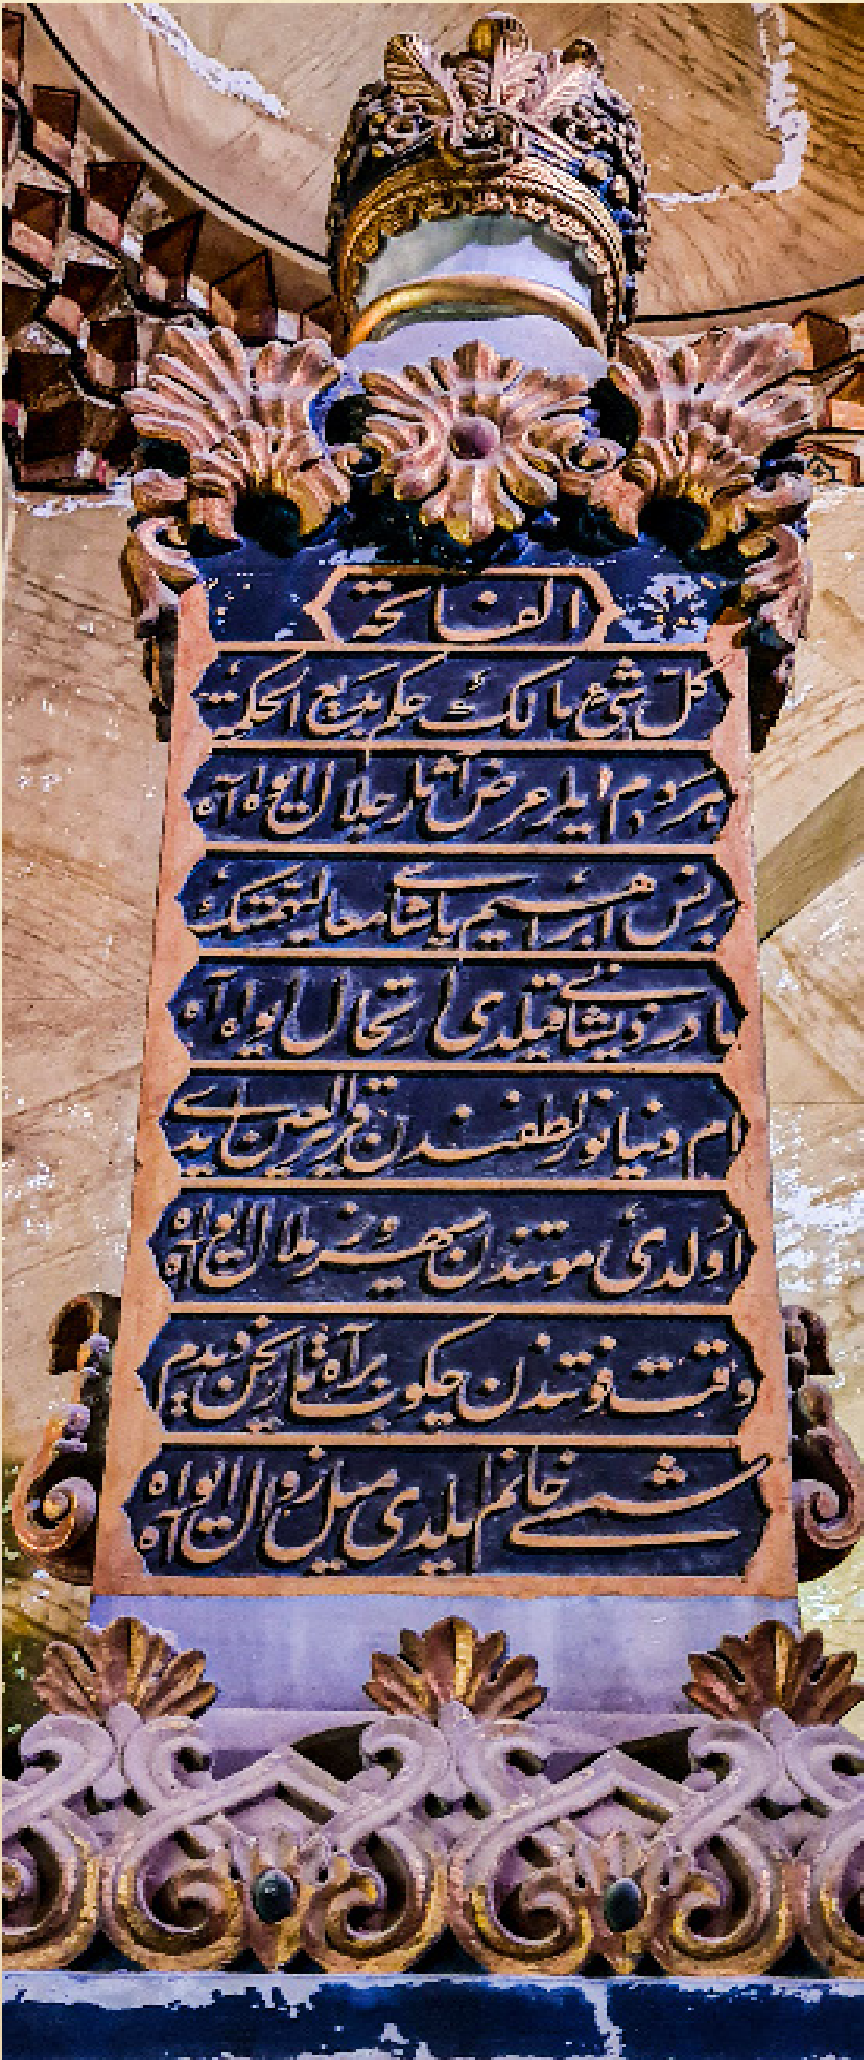 الفاتحة
كل شئ هالك حكم بديع الحكمة
هر دم ايلر عرض آثار جلال ايواه آه
برنس ابراهيم پاشا معاليهمتك
مادر ذيشانى قيلدى ارتحال ايواه آه
ام دنيا نور لطفندن قرير العين ايدى
اولدى موتندن سپهر ملال ايواه آه
وقت فوتندن چكوب بر آه تاريخن ديدم
شمسى خانم ايلدى ميل زوال ايواه آه